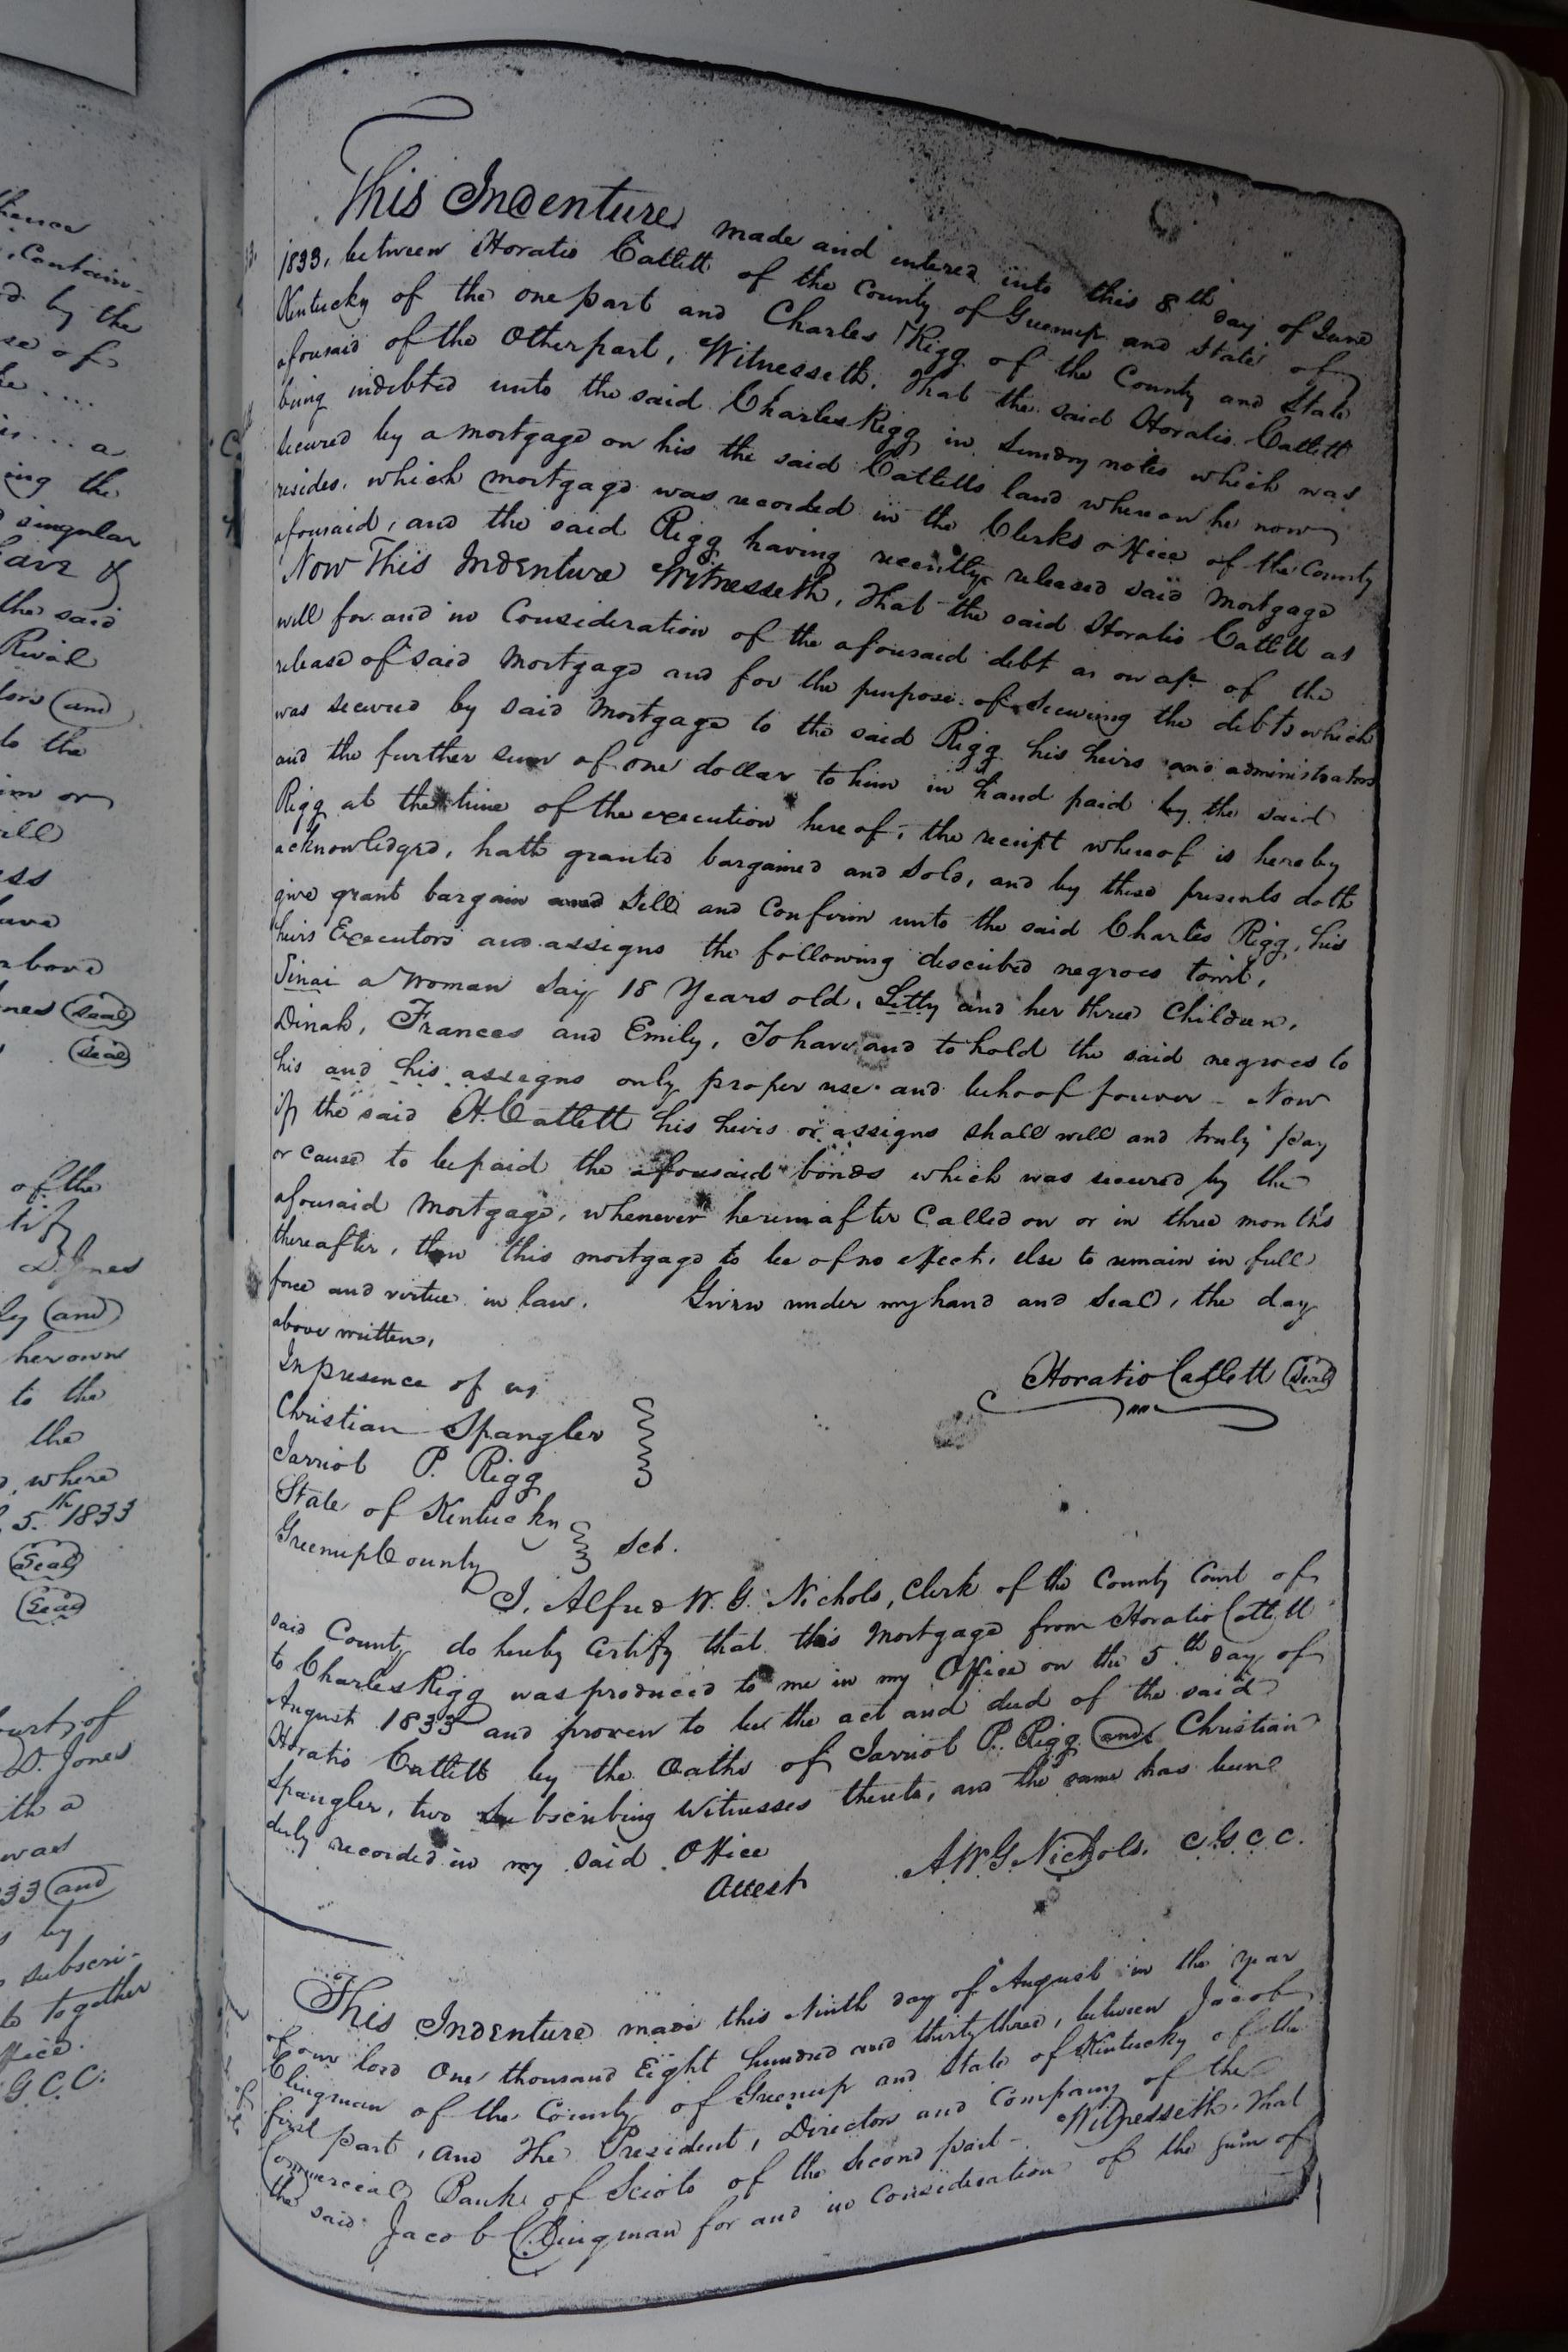 This Indenture made and entered into this 8th day of June
1833, between Horatio Catlett of the County of Greenup and State of
Kentucky of the one part and Charles Rigg of the County and State
afousaid of the Other part, Witnesseth, That the said Horatio Catlett
being indebted unto the said Charles Rigg in sundry notes which was
secured by a mortgage on his the said Catletts land whereon he now
resides, which mortgage was recorded in the Clerks office of the County
afousaid, and the said Rigg having recently released said Mortgage
Now This Indenture Witnesseth, That the said Horatio Catlett as
well for and in Consideration of the afousaid debt as on act of the
release of said Mortgage and for the purpose of Securing the debts which
was secured by said Mortgage to the said Rigg his heirs and administrators
and the further sum of one dollar to him in hand paid by the said
Rigg at the time of the execution hereof, the receipt whereof is hereby
acknowledged, hath granted bargained and sold, and by these presents doth
give grant bargain and sell and Confirm unto the said Charles Rigg, his
heirs Executors and assigns the following described negroes towit,
Sinai a Woman Say 18 Years old, Letty and her three Children,
Dinah, Frances and Emily, To have and to hold the said negroes to
his and his assigns only proper use and behoof forever - Now
if the said H. Catlett his heirs or assigns shall well and truly pay
or cause to be paid the afousaid bonds which was secured by the
afousaid Mortgage, whenever hereinafter Called on or in three months
thereafter, then this mortgage to be of no effect, else to remain in full
force and virtue in law. Given under my hand and seal, the day
above written,
In presence of us
Horatio Catlett (Seal)
Christian Spangler
Jarriot P. Rigg
State of Kentucky
Greenup County Sct.
I, Alfred W. G. Nichols, Clerk of the County Court of
said County do hereby Certify that this Mortgage from Horatio Catlett
to Charles Rigg was produced to me in my Office on the 5th day of
August 1833 and proven to be the act and deed of the said
Horatio Catlett by the Oaths of Jarriot P. Rigg and Christian
Spangler, two Subscribing Witnesses thereto, and the same has been
duly recorded in my said Office
Attest A W G Nichols. C. G. C. C.
This Indenture made this Ninth day of August in the year
of our lord One thousand Eight hundred and thirty three, between Jacob
Clingman of the County of Greenup and State of Kentucky of the
first part, and The President, Directors and Company of the
Commercial Bank of Scioto of the Second part - Witnesseth, That
the said Jacob Clingman for and in Consideration of the sum of